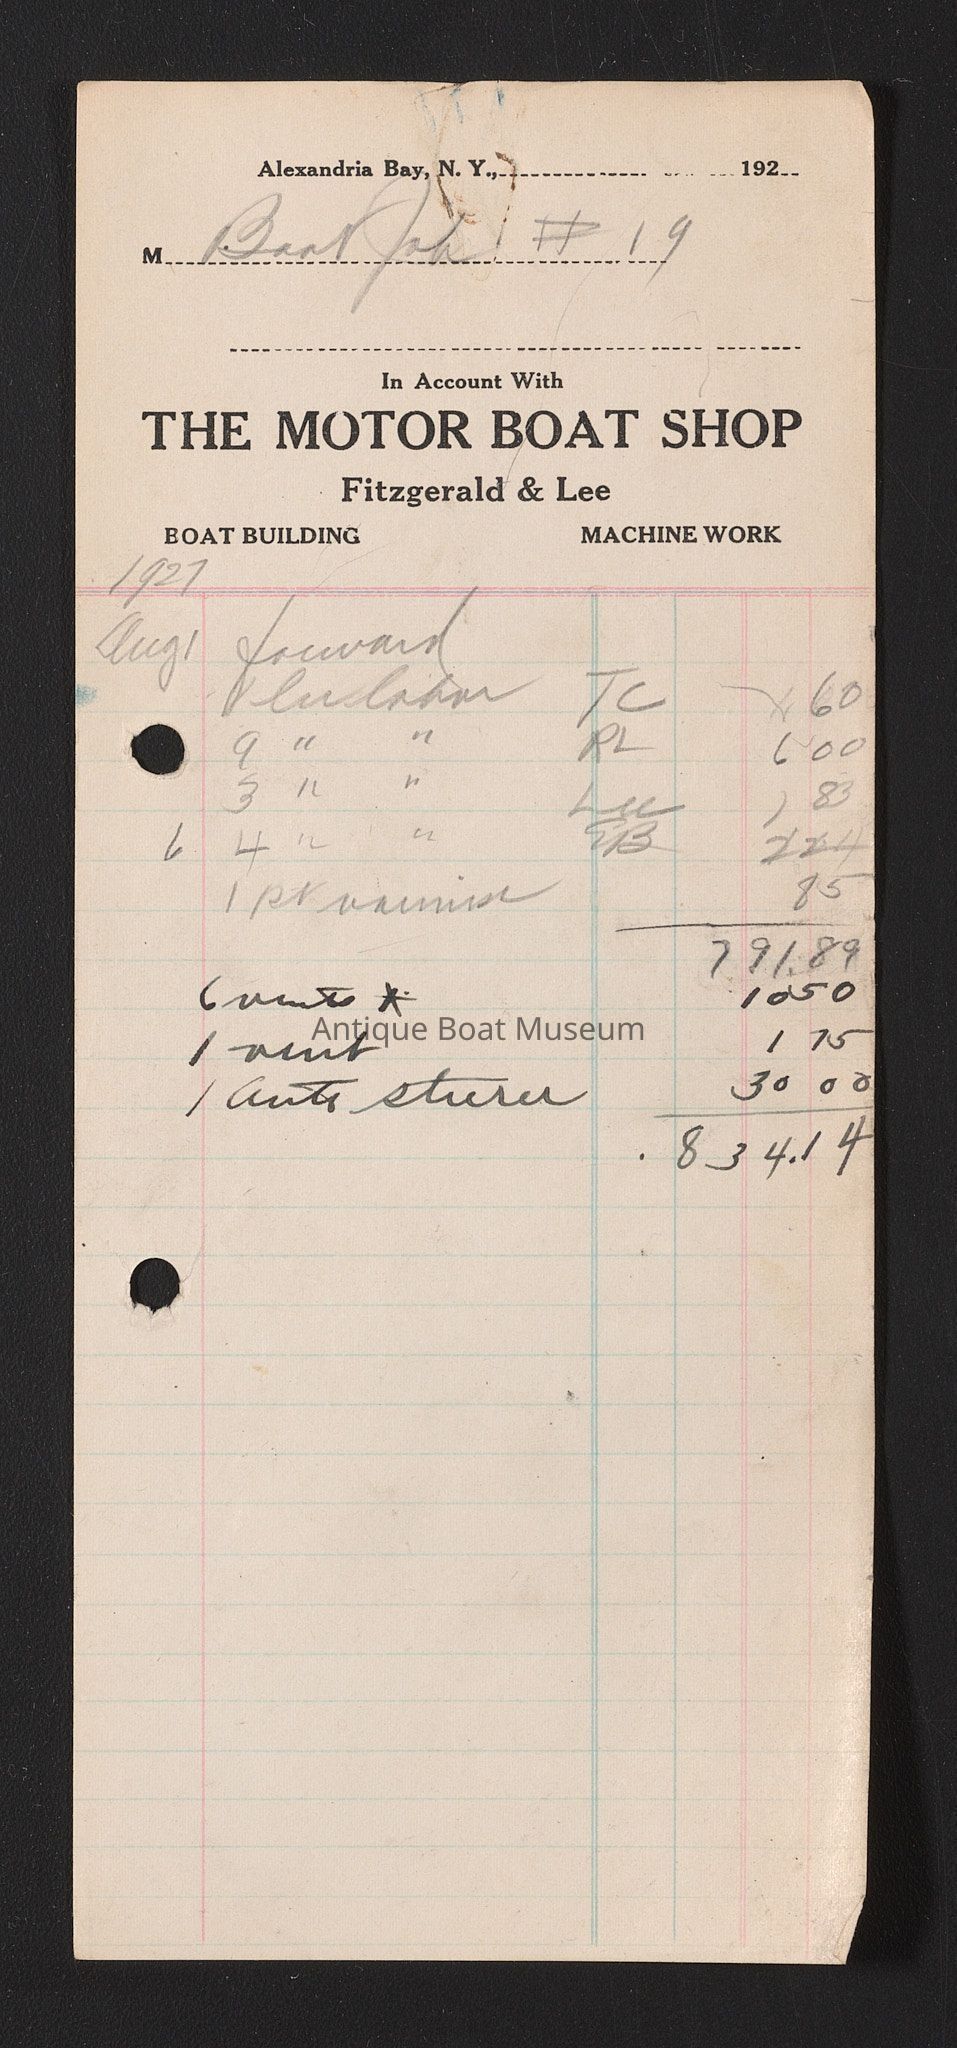 Alexandria Bay, N. Y., 192
M Boat Job # 19
In Account With
THE MOTOR BOAT SHOP
Fitzgerald & Lee
BOAT BUILDING MACHINE WORK
1927
Aug 1 forward
hr labor TC 60
9 " " RL 6 00
3 " " Lee 1 83
6 4 " " EB 2 24
1 pt varnish 85
791.89
6 vents * 10 50
Antique Boat Museum
1 vent 1 75
1 auto steerer 30 00
834.14